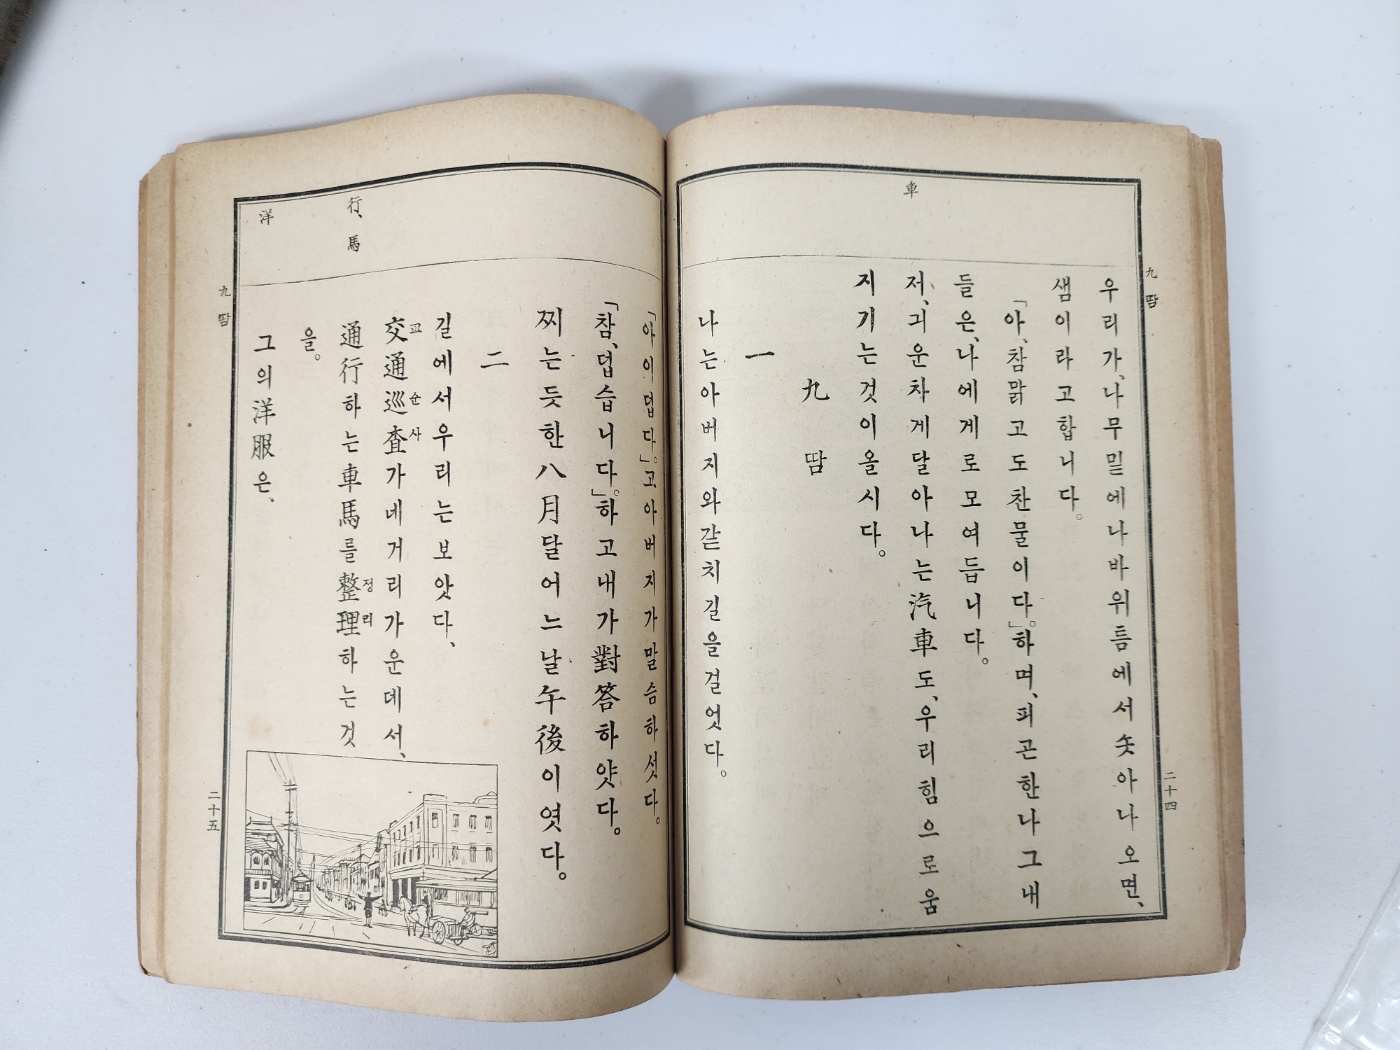 車
九 땀
우리가、나무밑에나바위틈에서솟아나오면、
샘이라고합니다。
「아、참맑고도찬물이다。」하며、피곤한나그내
들은、나에게로모여듭니다。
저、긔운차게달아나는汽車도、우리힘으로움
지기는것이올시다。
九 땀
一
나는아버지와같치길을걸엇다。
二十四
行、馬
洋
「아이덥다。」고、아버지가말슴하섯다。
「참、덥습니다。」하고내가對答하얏다。
찌는듯한八月달어느날午後이엿다。
二
길에서우리는보앗다、
交通巡査가네거리가운데서、
교 순사
通行하는車馬를整理하는것
정리
을。
그의洋服은、
九 땀
二十五